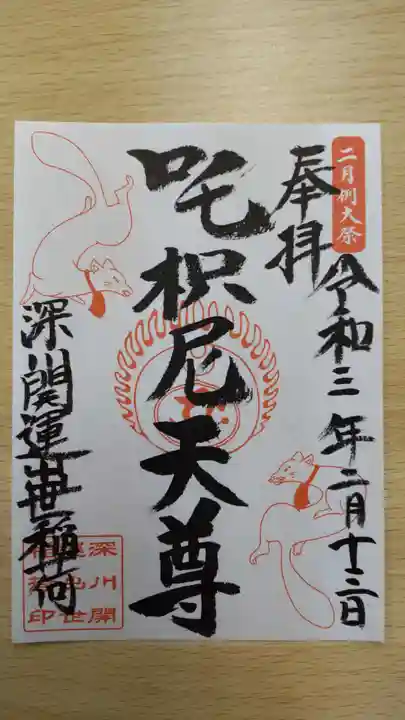 二月例大祭
奉拝
令和三年二月十二日
吒枳尼天尊
深川開運出世稲荷
深川開
運出世